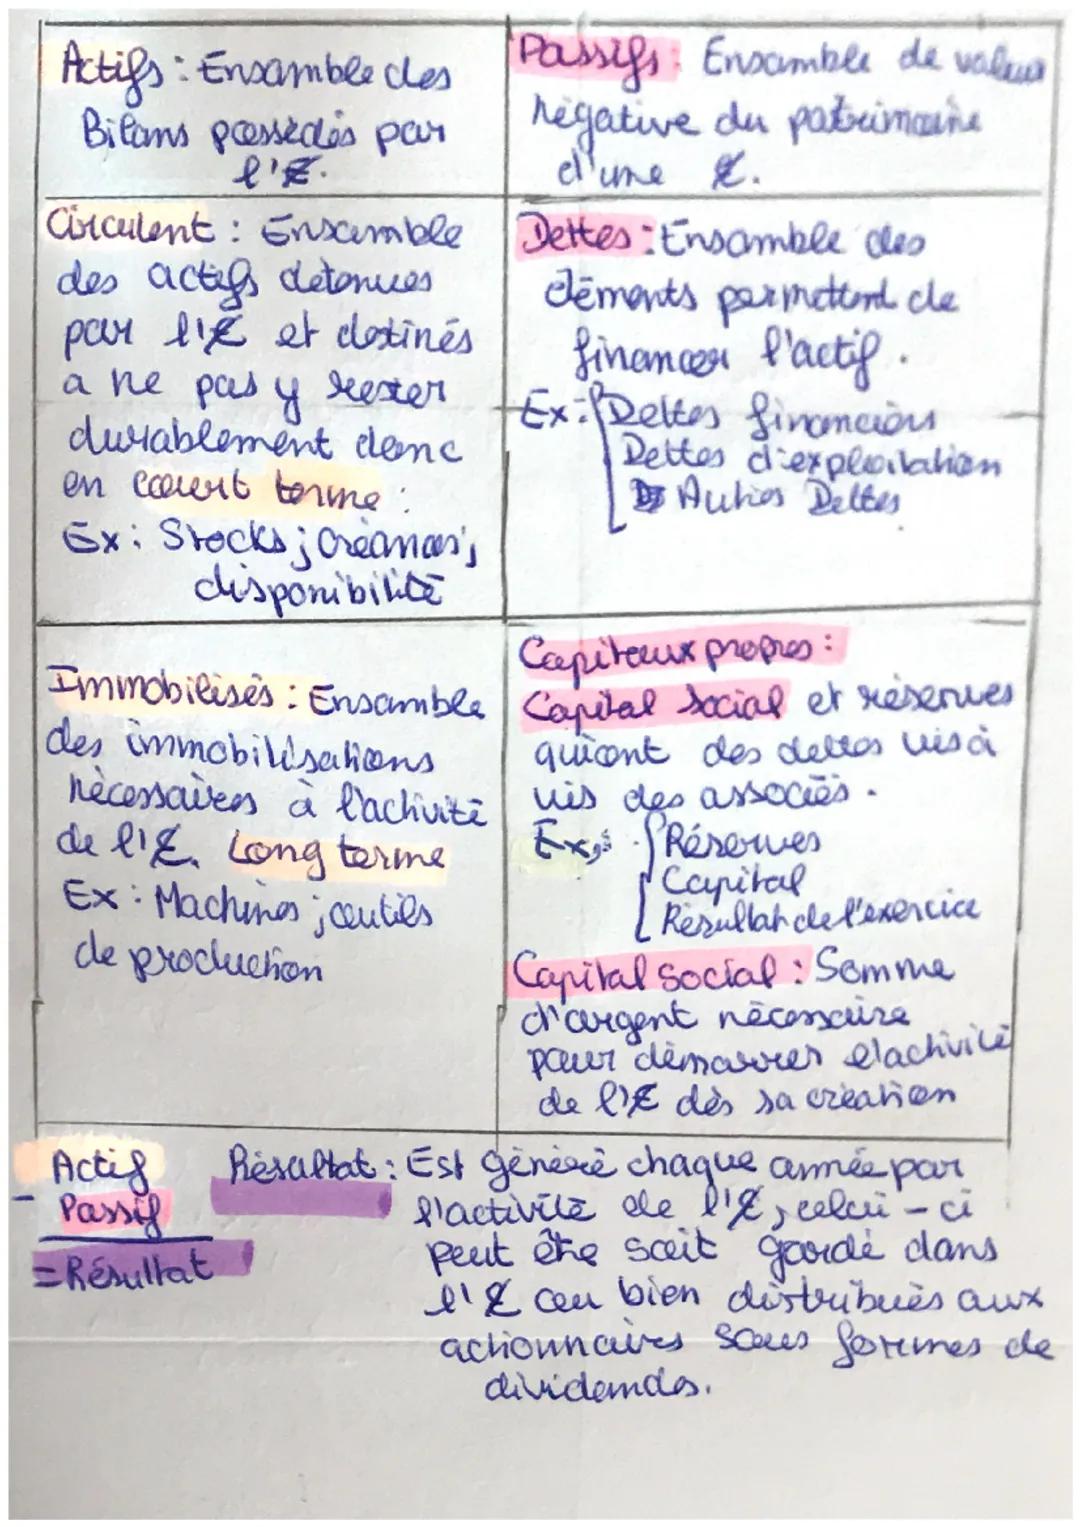 Actifs : Ensamble des
Bilans possédés par
l'E.
Passifs : Ensamble de valeurs
négative du patrimoine
d'une E.
Circulent : Ensamble
des actifs détenues
par l'E et destinés
a ne pas y rester
durablement donc
en court terme :
Ex : Stocks ; créances ;
disponibilité
Dettes : Ensamble des
éléments permettent de
financer l'actif.
Ex : Dettes financiers
Dettes d'exploitation
Autres Dettes
Immobilisés : Ensamble
des immobilisations
nécessaires à l'activité
de l'E. Long terme
Ex : Machines ; outils
de production
Capitaux propres :
Capital social et réserves
qui ont des dettes vis à
vis des associés.
Ex : Réserves
Capital
Résultat de l'exercice
Capital social : Somme
d'argent nécessaire
pour démarrer l'activité
de l'E dès sa création
Actif
- Passif
= Résultat
Résultat : Est généré chaque année par
l'activité de l'E, celui-ci
peut être soit gardé dans
l'E ou bien distribués aux
actionnaires sous formes de
dividendes.